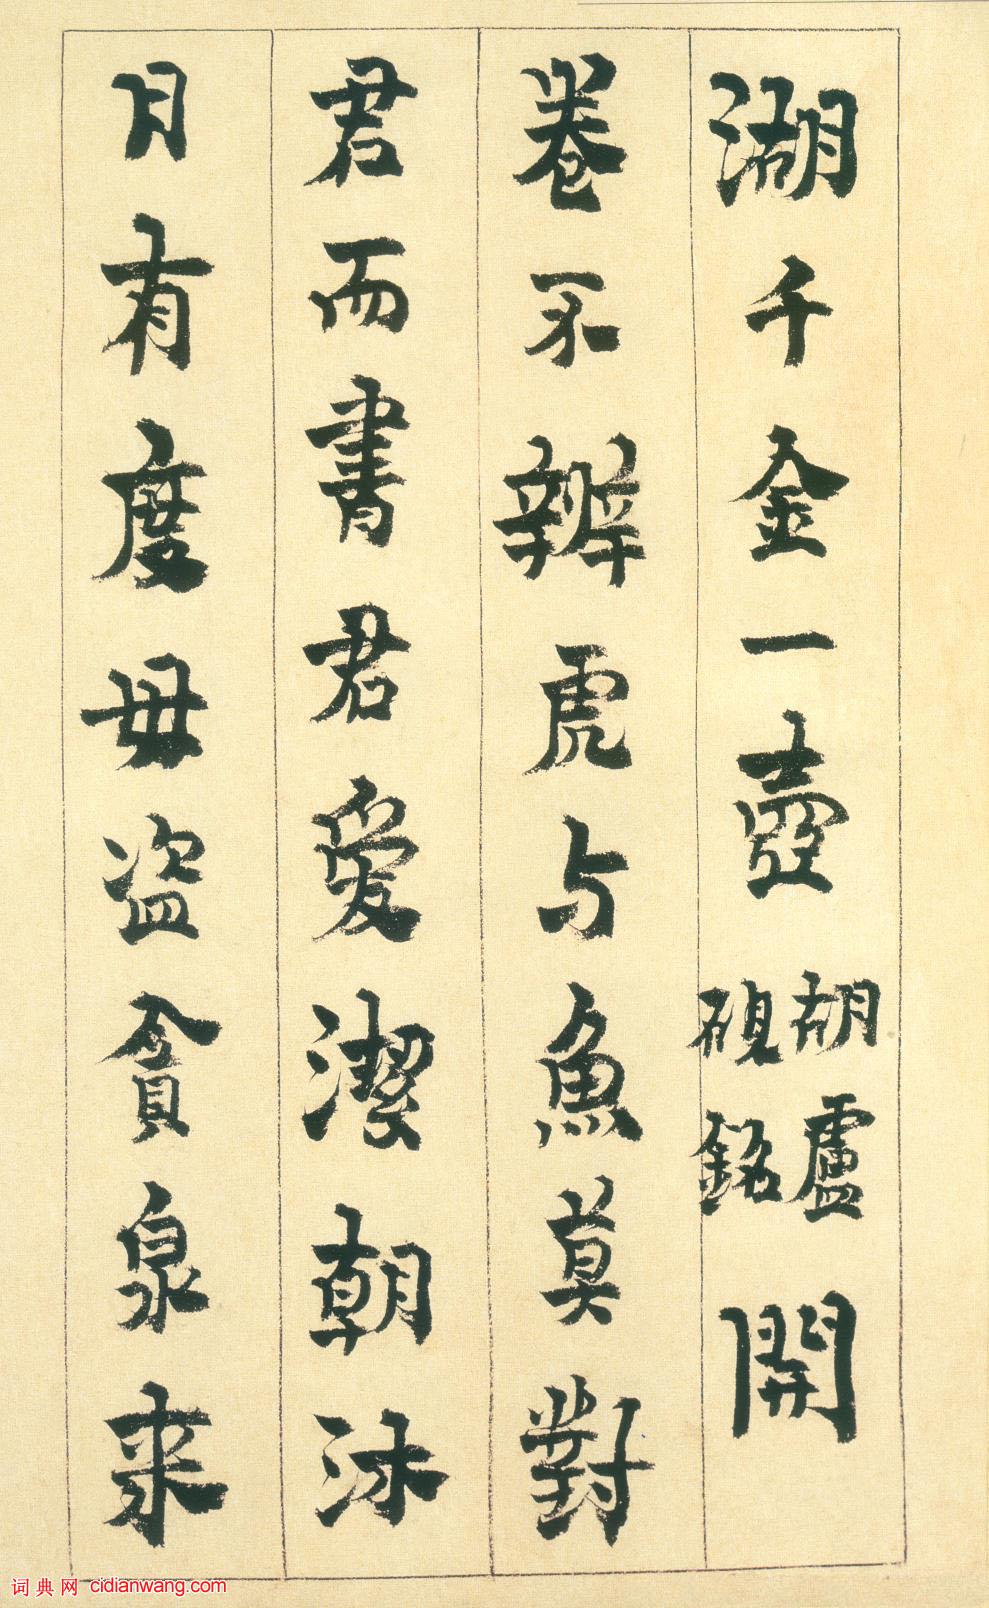 湖千金一壺胡盧硯銘開
卷不辨虎与魚莫對
君而書君愛潔朝沐
月有度毋盜貪泉來
词典网 cidianwang.com